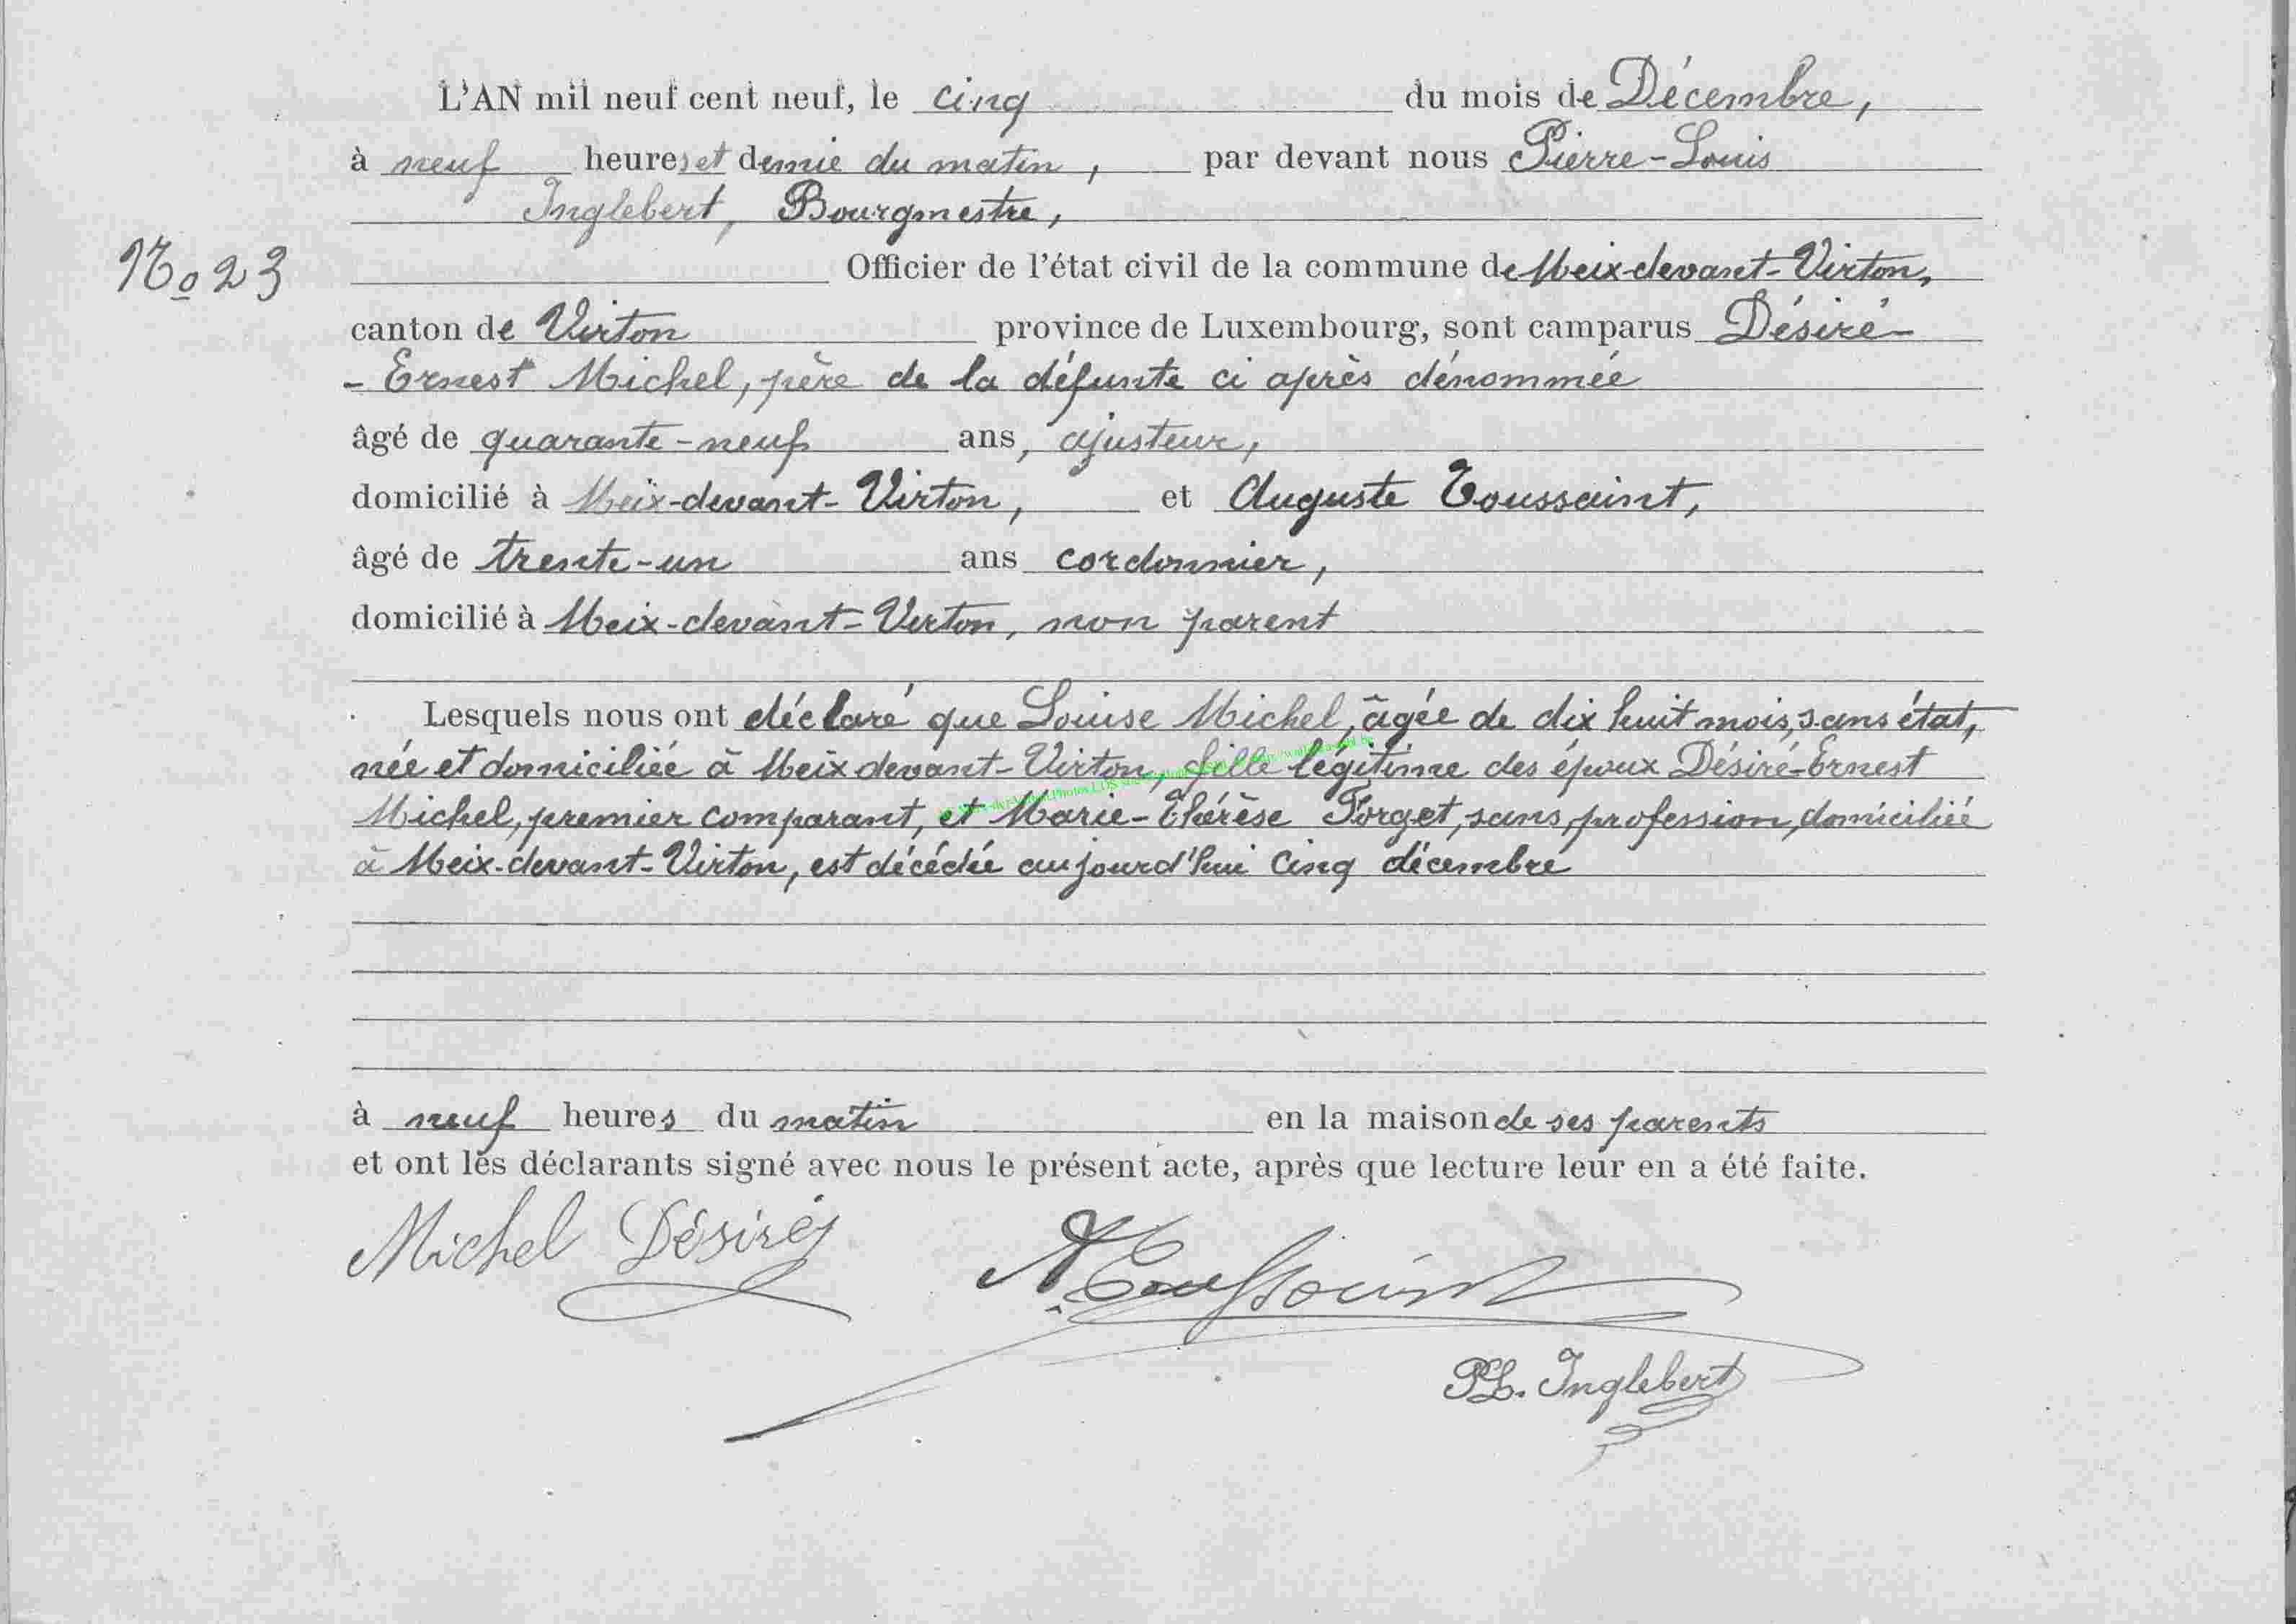 L'AN mil neuf cent neuf, le cinq du mois de Décembre,
à neuf heures et demie du matin, par devant nous Pierre-Louis
Inglebert, Bourgmestre,
No 23
Officier de l'état civil de la commune de Meix-devant-Virton,
canton de Virton province de Luxembourg, sont camparus Désiré-
- Ernest Michel, père de la défunte ci après dénommée
âgé de quarante-neuf ans, ajusteur,
domicilié à Meix-devant-Virton, et Auguste Toussaint,
âgé de trente-un ans cordonnier,
domicilié à Meix-devant-Virton, non parent
Lesquels nous ont déclaré que Louise Michel, âgée de dix huit mois, sans état,
née et domiciliée à Meix devant-Virton, fille légitime des époux Désiré-Ernest
Michel, premier comparant, et Marie-Thérèse Forget, sans profession, domiciliée
à Meix-devant-Virton, est décédée aujourd'hui cinq décembre
à neuf heures du matin en la maison de ses parents
et ont les déclarants signé avec nous le présent acte, après que lecture leur en a été faite.
Michel Désiré
A Toussaint
PL. Inglebert